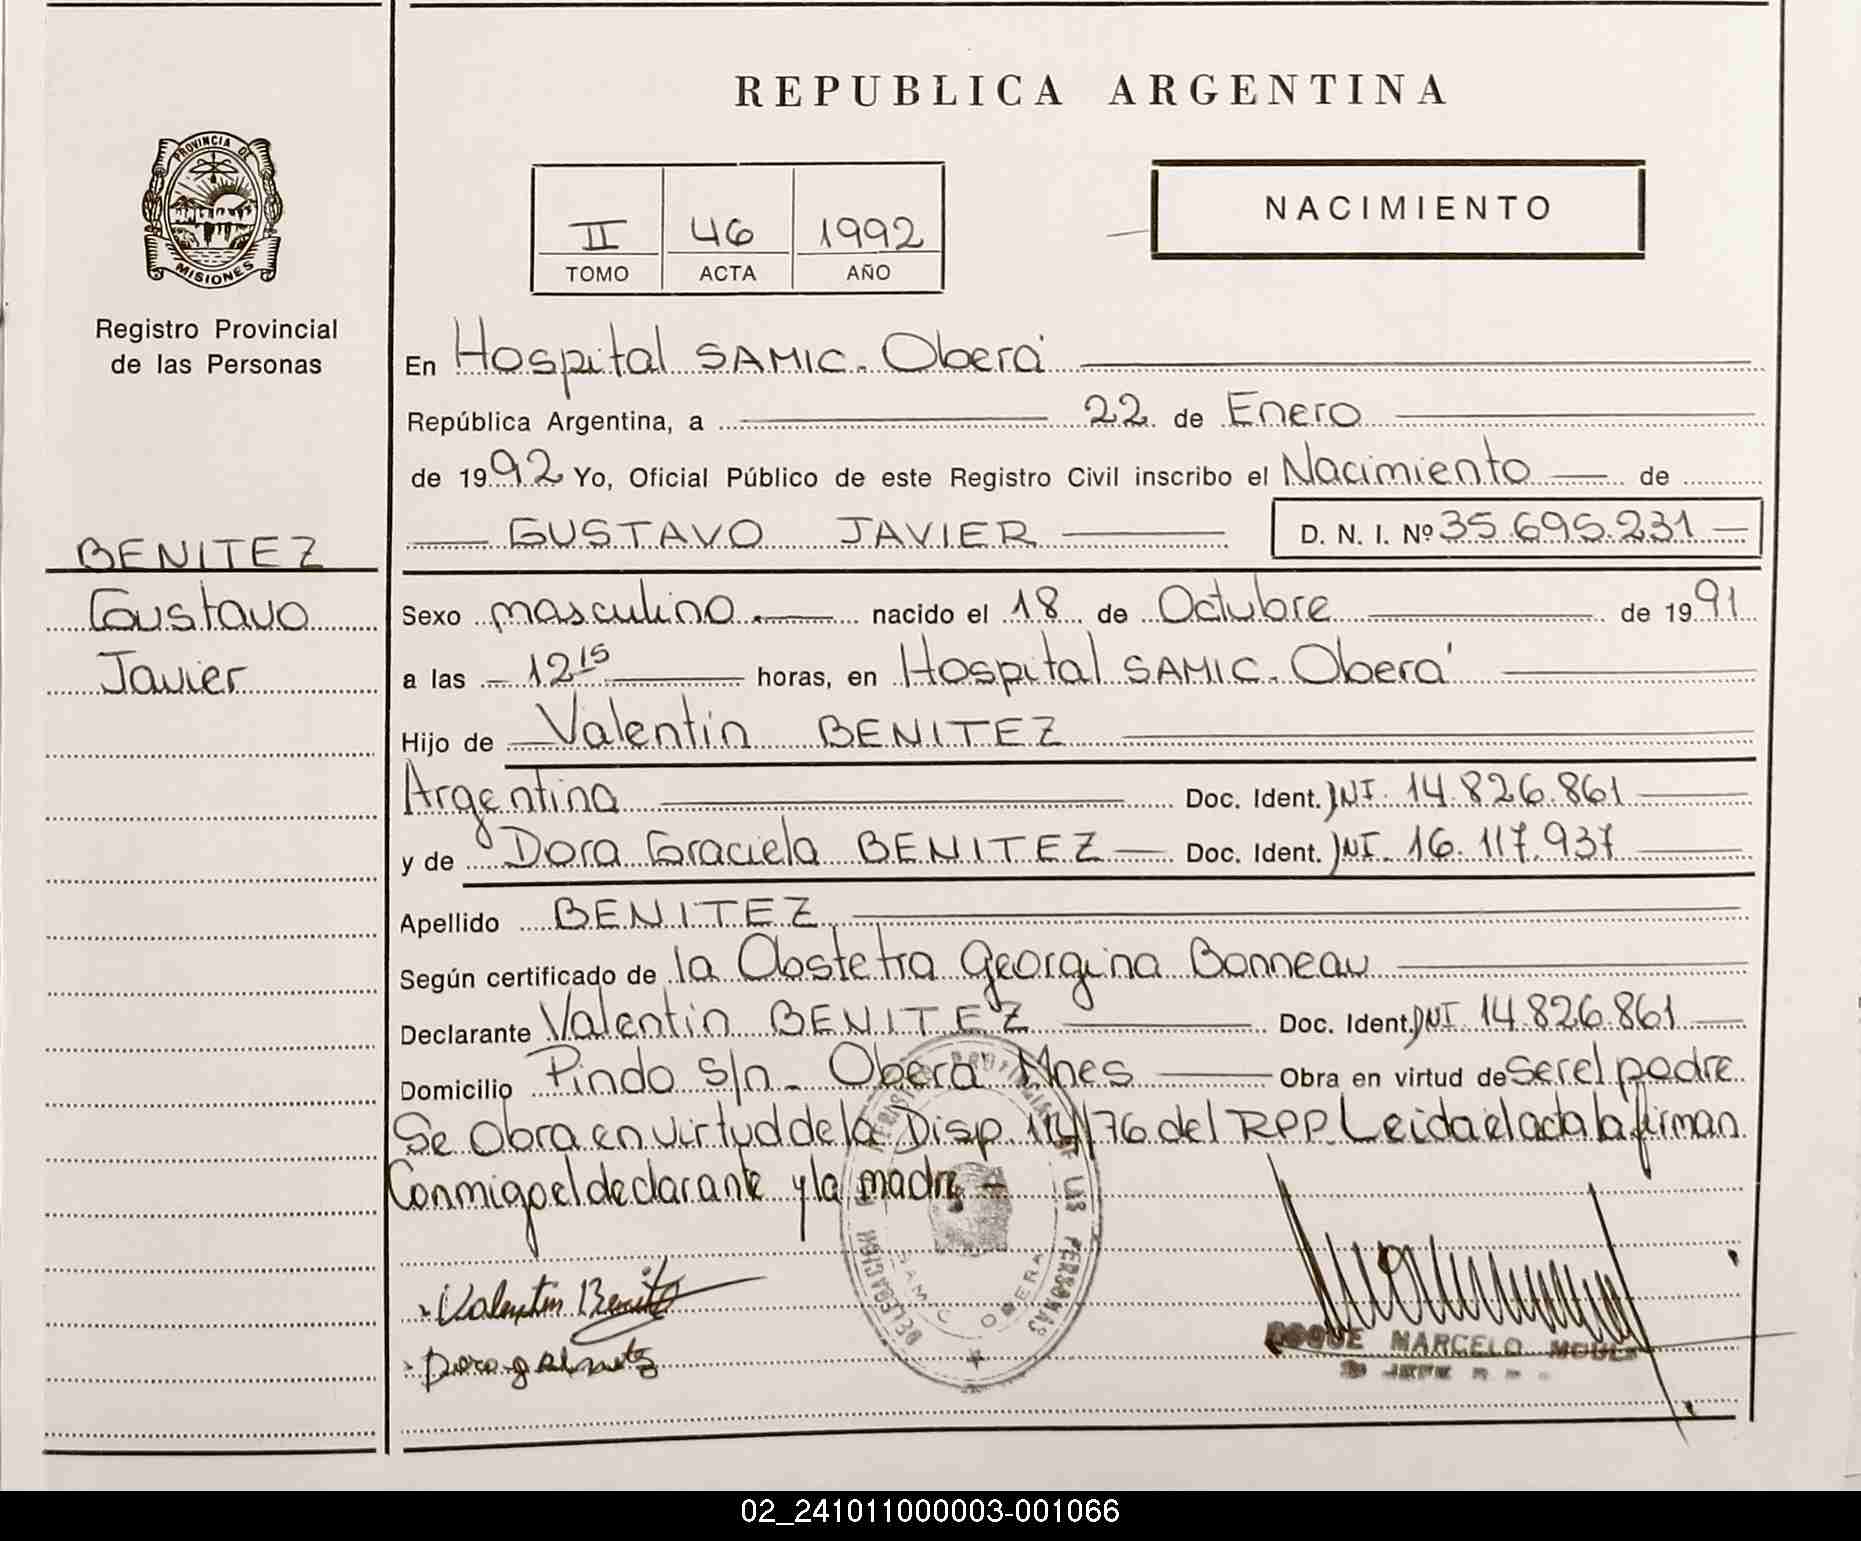 REPUBLICA ARGENTINA
PROVINCIA DE
MISIONES
Registro Provincial
de las Personas
II 46 1992
TOMO ACTA AÑO
NACIMIENTO
En Hospital SAMIC. Oberá
República Argentina, a 22 de Enero
de 1992 Yo, Oficial Público de este Registro Civil inscribo el Nacimiento de
GUSTAVO JAVIER D. N. I. Nº 35.695.231
BENITEZ
Gustavo
Javier
Sexo masculino. nacido el 18 de Octubre de 1991
a las 12 15 horas, en Hospital SAMIC. Oberá
Hijo de Valentin BENITEZ
Argentina Doc. Ident. DNI. 14.826.861
y de Dora Graciela BENITEZ Doc. Ident. DNI. 16.117.937
Apellido BENITEZ
Según certificado de la Obstetra Georgina Bonneau
Declarante Valentin BENITEZ Doc. Ident. DNI 14.826.861
Domicilio Pindo s/n - Oberá Mnes Obra en virtud de ser el padre
Se obra en virtud de la Disp. 114/76 del RPP. Leida el acta la firman
Conmigo el declarante y la madre -
Valentin Benitez
DELEGACION SAMIC OBERA
LAS PERSONAS
ROQUE MARCELO
02_241011000003-001066